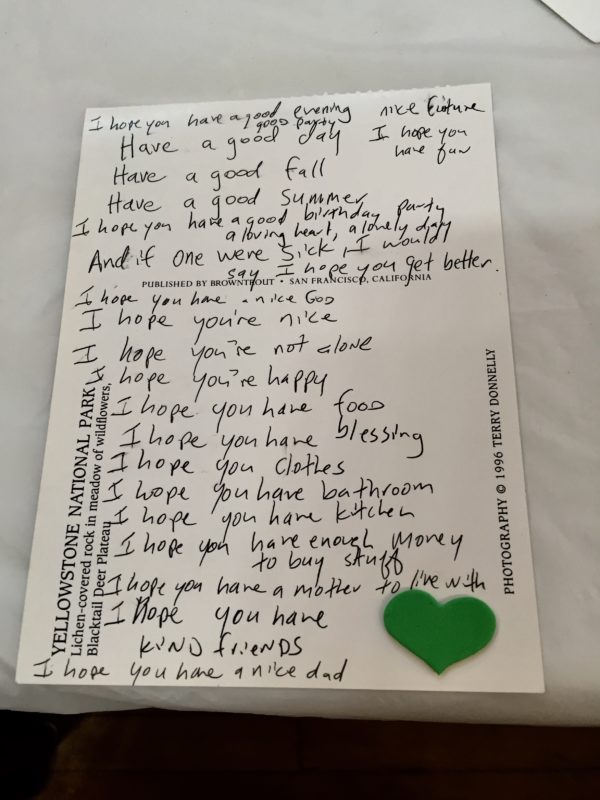 I hope you have a good evening
good party
nice
Have a good day
I hope you
have fun
Have a good fall
Have a good summer
I hope you have a good birthday party
a loving heart, a lovely day
And if one were sick, I would
say I hope you get better.
PUBLISHED BY BROWNTROUT • SAN FRANCISCO, CALIFORNIA
I hope you have a nice God
I hope you're nice
I hope you're not alone
I hope you're happy
I hope you have food
I hope you have blessing
I hope you clothes
I hope you have bathroom
I hope you have kitchen
I hope you have enough money
to buy stuff
I hope you have a mother to live with
I hope you have
KIND friENDS
I hope you have a nice dad
YELLOWSTONE NATIONAL PARK
Lichen-covered rock in meadow of wildflowers,
Blacktail Deer Plateau
PHOTOGRAPHY © 1996 TERRY DONNELLY